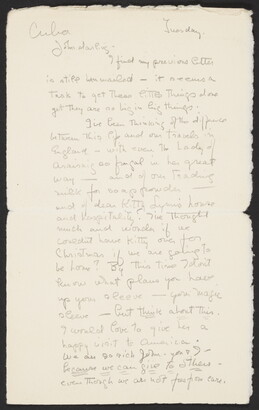 Cuba Tuesday.
John darling -
I find my previous letter
is still unmailed - it seems a
task to get these little things done
yet they are so big in big things.
I've been thinking of the difference
between this life and our travels in
England - with even the Lady of
so frugal in her great
way - and of our trading
milk for soap powder -
and of dear Kitty house
and hospitality. I've thought
much and wonder if we
couldn't have Kitty over for
Christmas if we are going to
be home? By this time I don't
know what plans you have
up your sleeve - you magic
sleeve - but think about this.
I would love to give her a
happy visit to America.
We are so rich John - yes? -
because we can give to others -
even though we are not